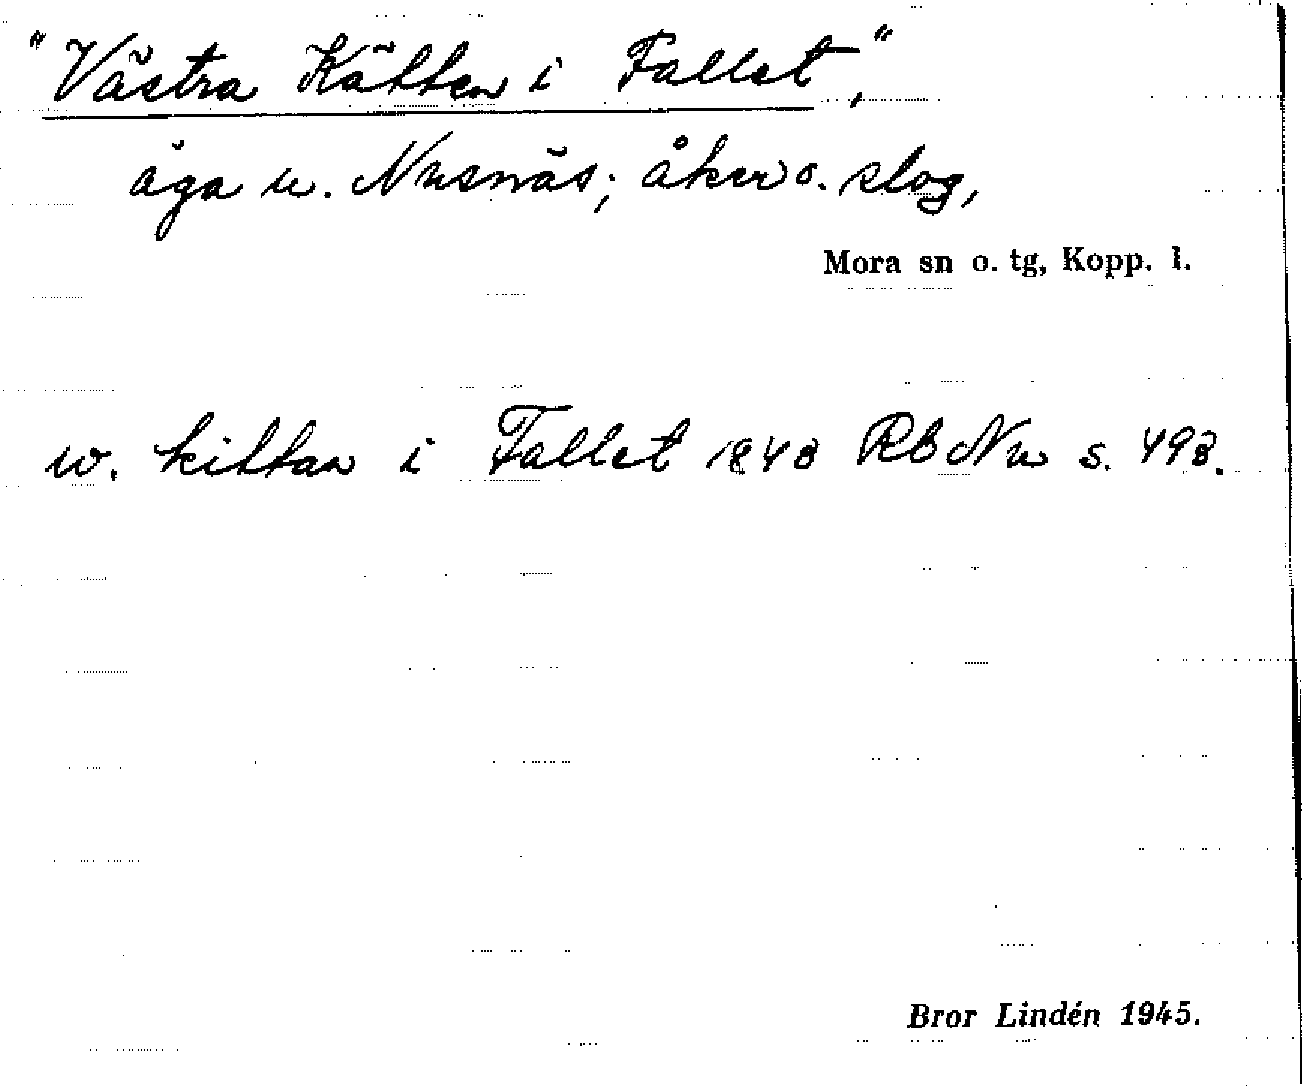 "Västra Kätten i Fallet,"
äga u. Nusnäs; åker o. slog,
Mora sn o. tg, Kopp. l.
w. kittan i Fallet 1848 Rb Nu s. 498.
Bror Lindén 1945.